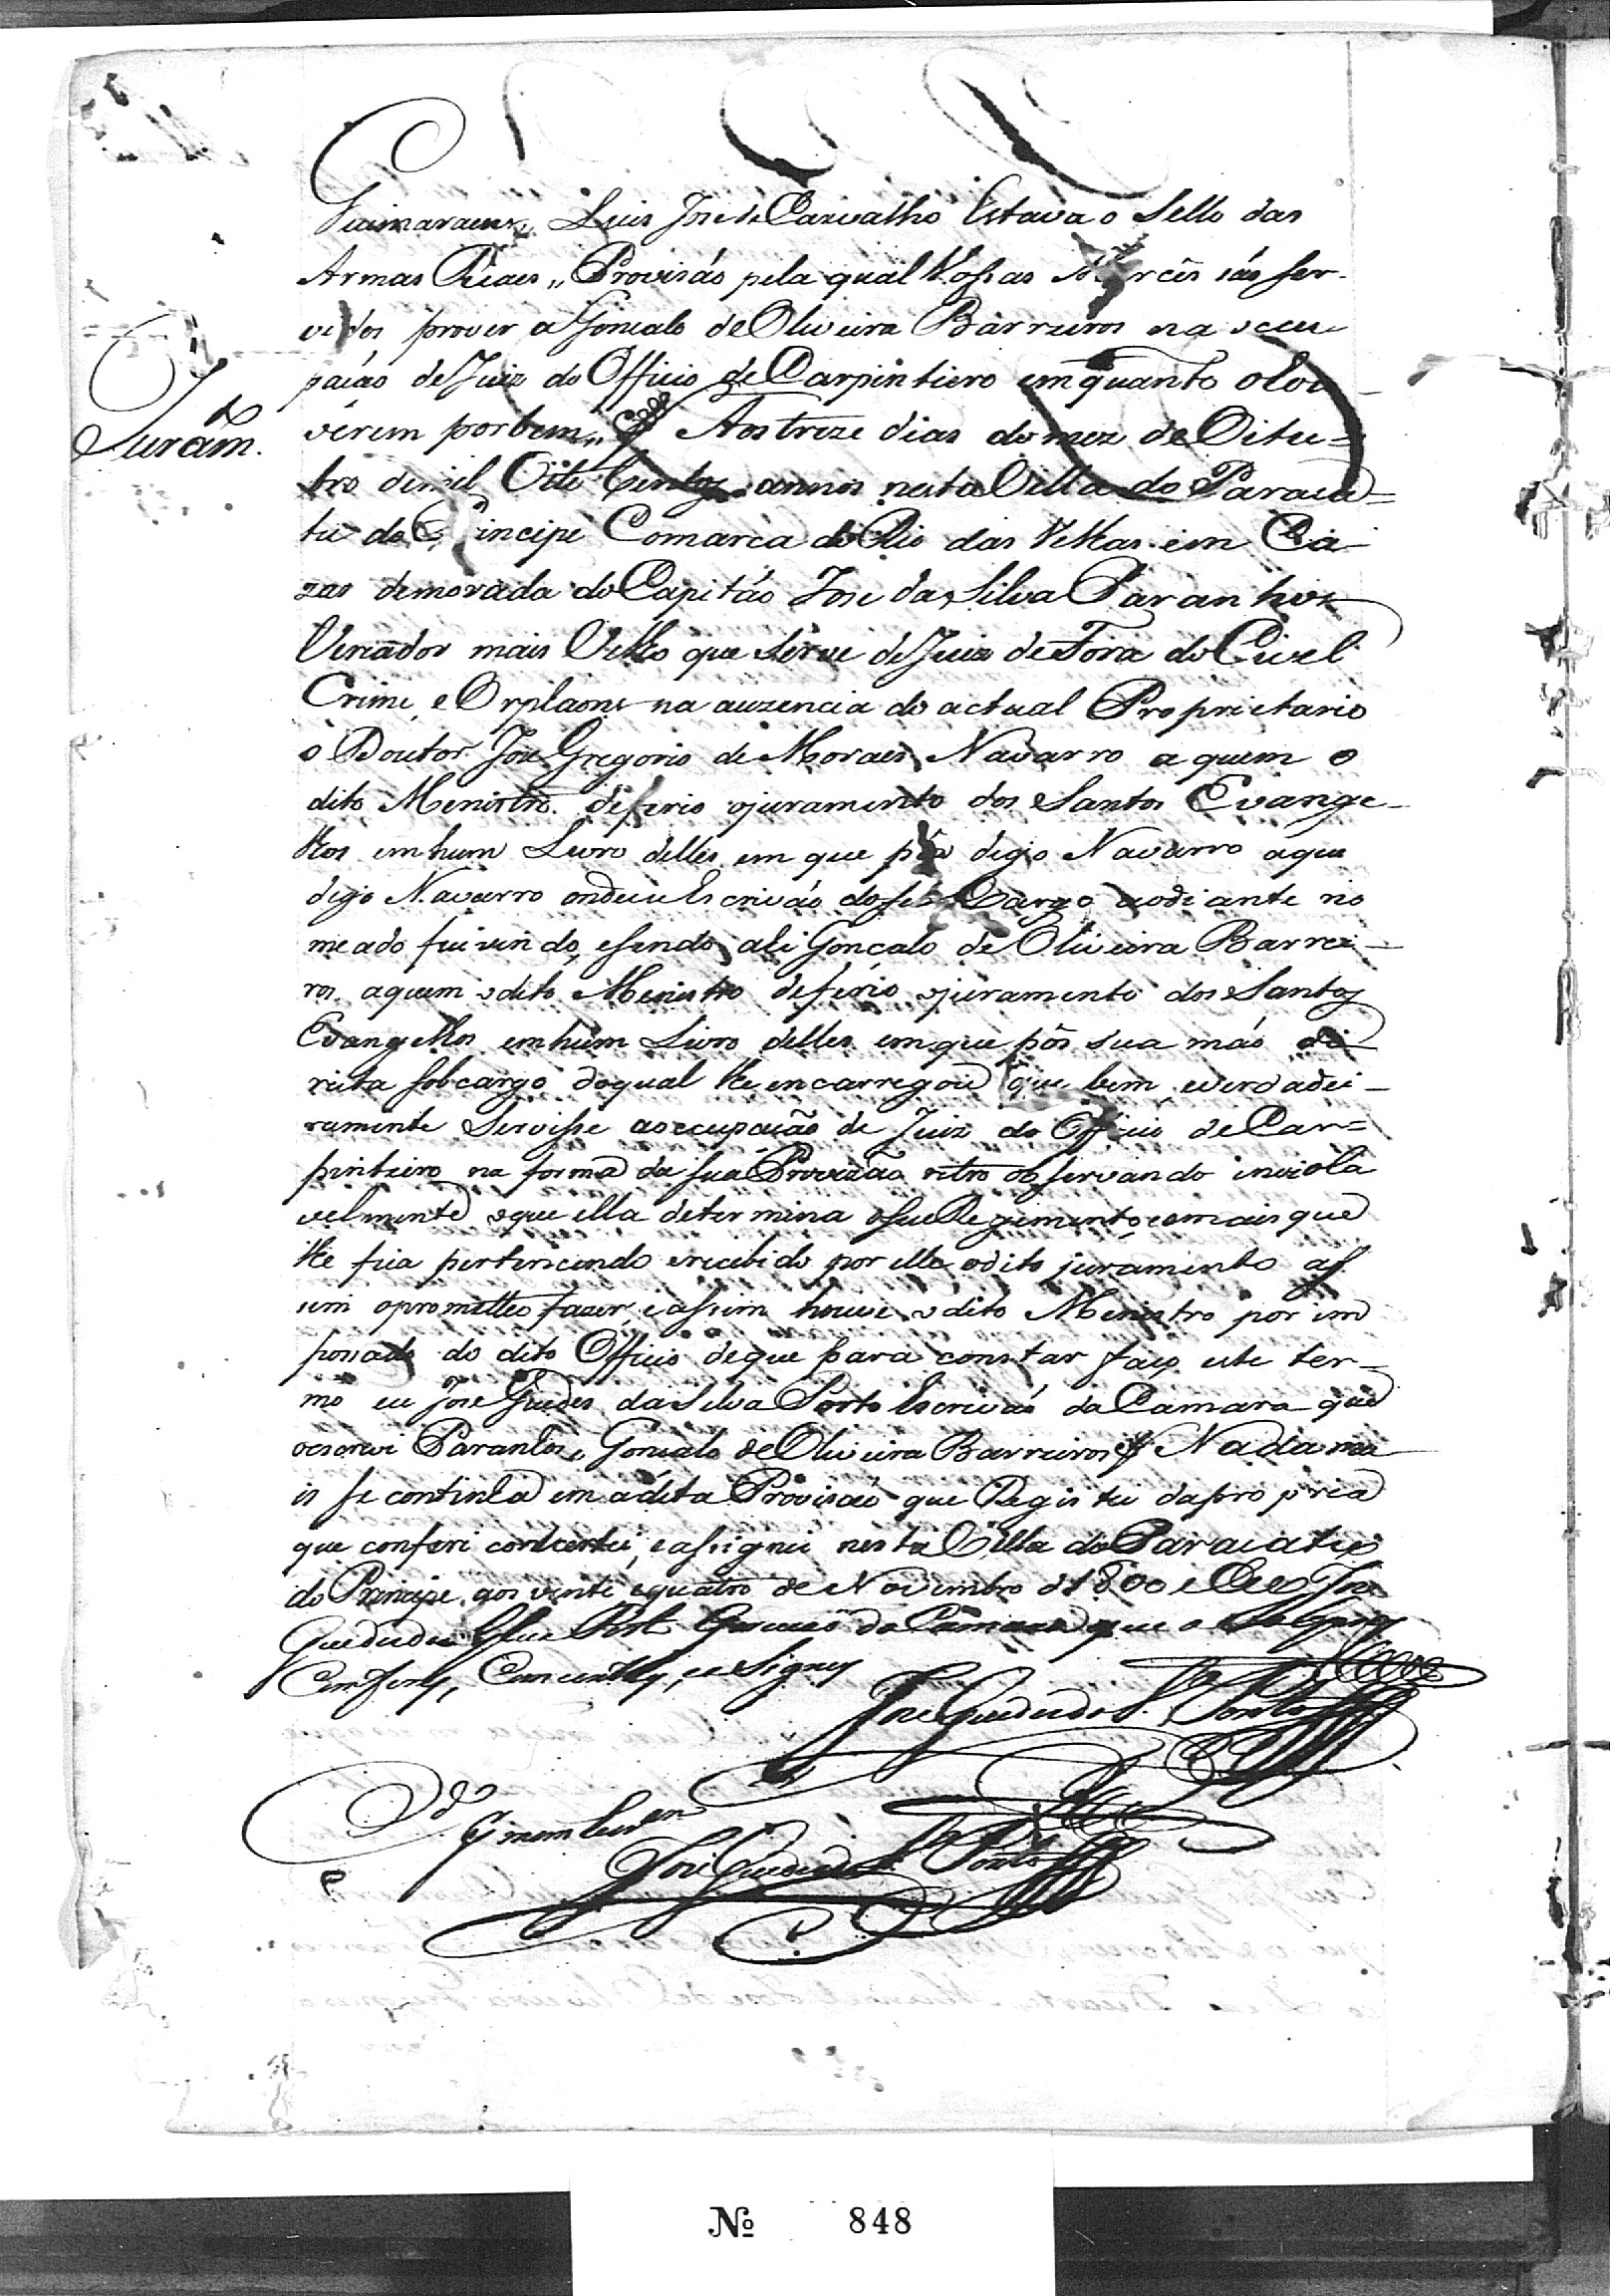 Guimaraens,, Luis Joze de Carvalho Estava o Sello das
Armas Reaes,, Provisáo pela qual Vossas Mercês sáo ser-
vidos prover a Gonsalo de Oliveira Barreiros na occu
pacáo de Juiz do Officio de Carpintiero emquanto o hou-
verem por bem,, Aos treze dias do mez de Oitu-
Juram.to
bro de mil Oito Centos annos nesta Villa do Paraca-
tu do Principe Comarca do Rio das Velhas em Ca
zas de morada do Capitáo Joze da Silva Paranhos
Veriador mais Velho que serve de Juiz de Fora do Civel
Crime e Orphaons na auzencia do actual Proprietario
o Doutor Joze Gregorio de Moraes Navarro a quem o
dito Menistro deferio o juramento dos Santos Evange-
lhos em hum Livro delles em que pôs digo Navarro aque
digo Navarro onde eu Escriváo do seu Cargo aodiante no
meado fui vindo, e sendo ali Gonçalo de Oliveira Barrei-
ros aquem o dito Menistro deferio o juramento dos Santos
Evangelhos em hum Livro delles em que pôs sua máo di
reita sob cargo do qual lhe encarregou que bem e verdadei-
ramente Servisse a occupacáo de Juiz do Officio de Car=
pinteiro na forma da sua Provizáo retro observando inviola
velmente o que ella determina o seu Regimento e o mais que
lhe fica pertencendo e recebido por elle o dito juramento as
sim o prometteo fazer, e assim houve o dito Menistro por em
possado do dito Officio de que para constar faço este ter-
mo eu Joze Guedes da Silva Porto Escriváo da Camara que
o escrevi Paranhos,, Gonsalo de Oliveira Barreiros Nada ma
is se continha em a dita Provisáo que Registei da propria
que conferi concertei, e assignei nesta Villa do Paracatu
do Principe aos vinte e quatro de Novembro de 1800 e Eu Joze
Guedes da Silva Port Escriváo da Camara que o
Confery, Concertey, e asigney
Joze Guedes da S.a Porto
Joze Guedes da S.a Porto
No 848